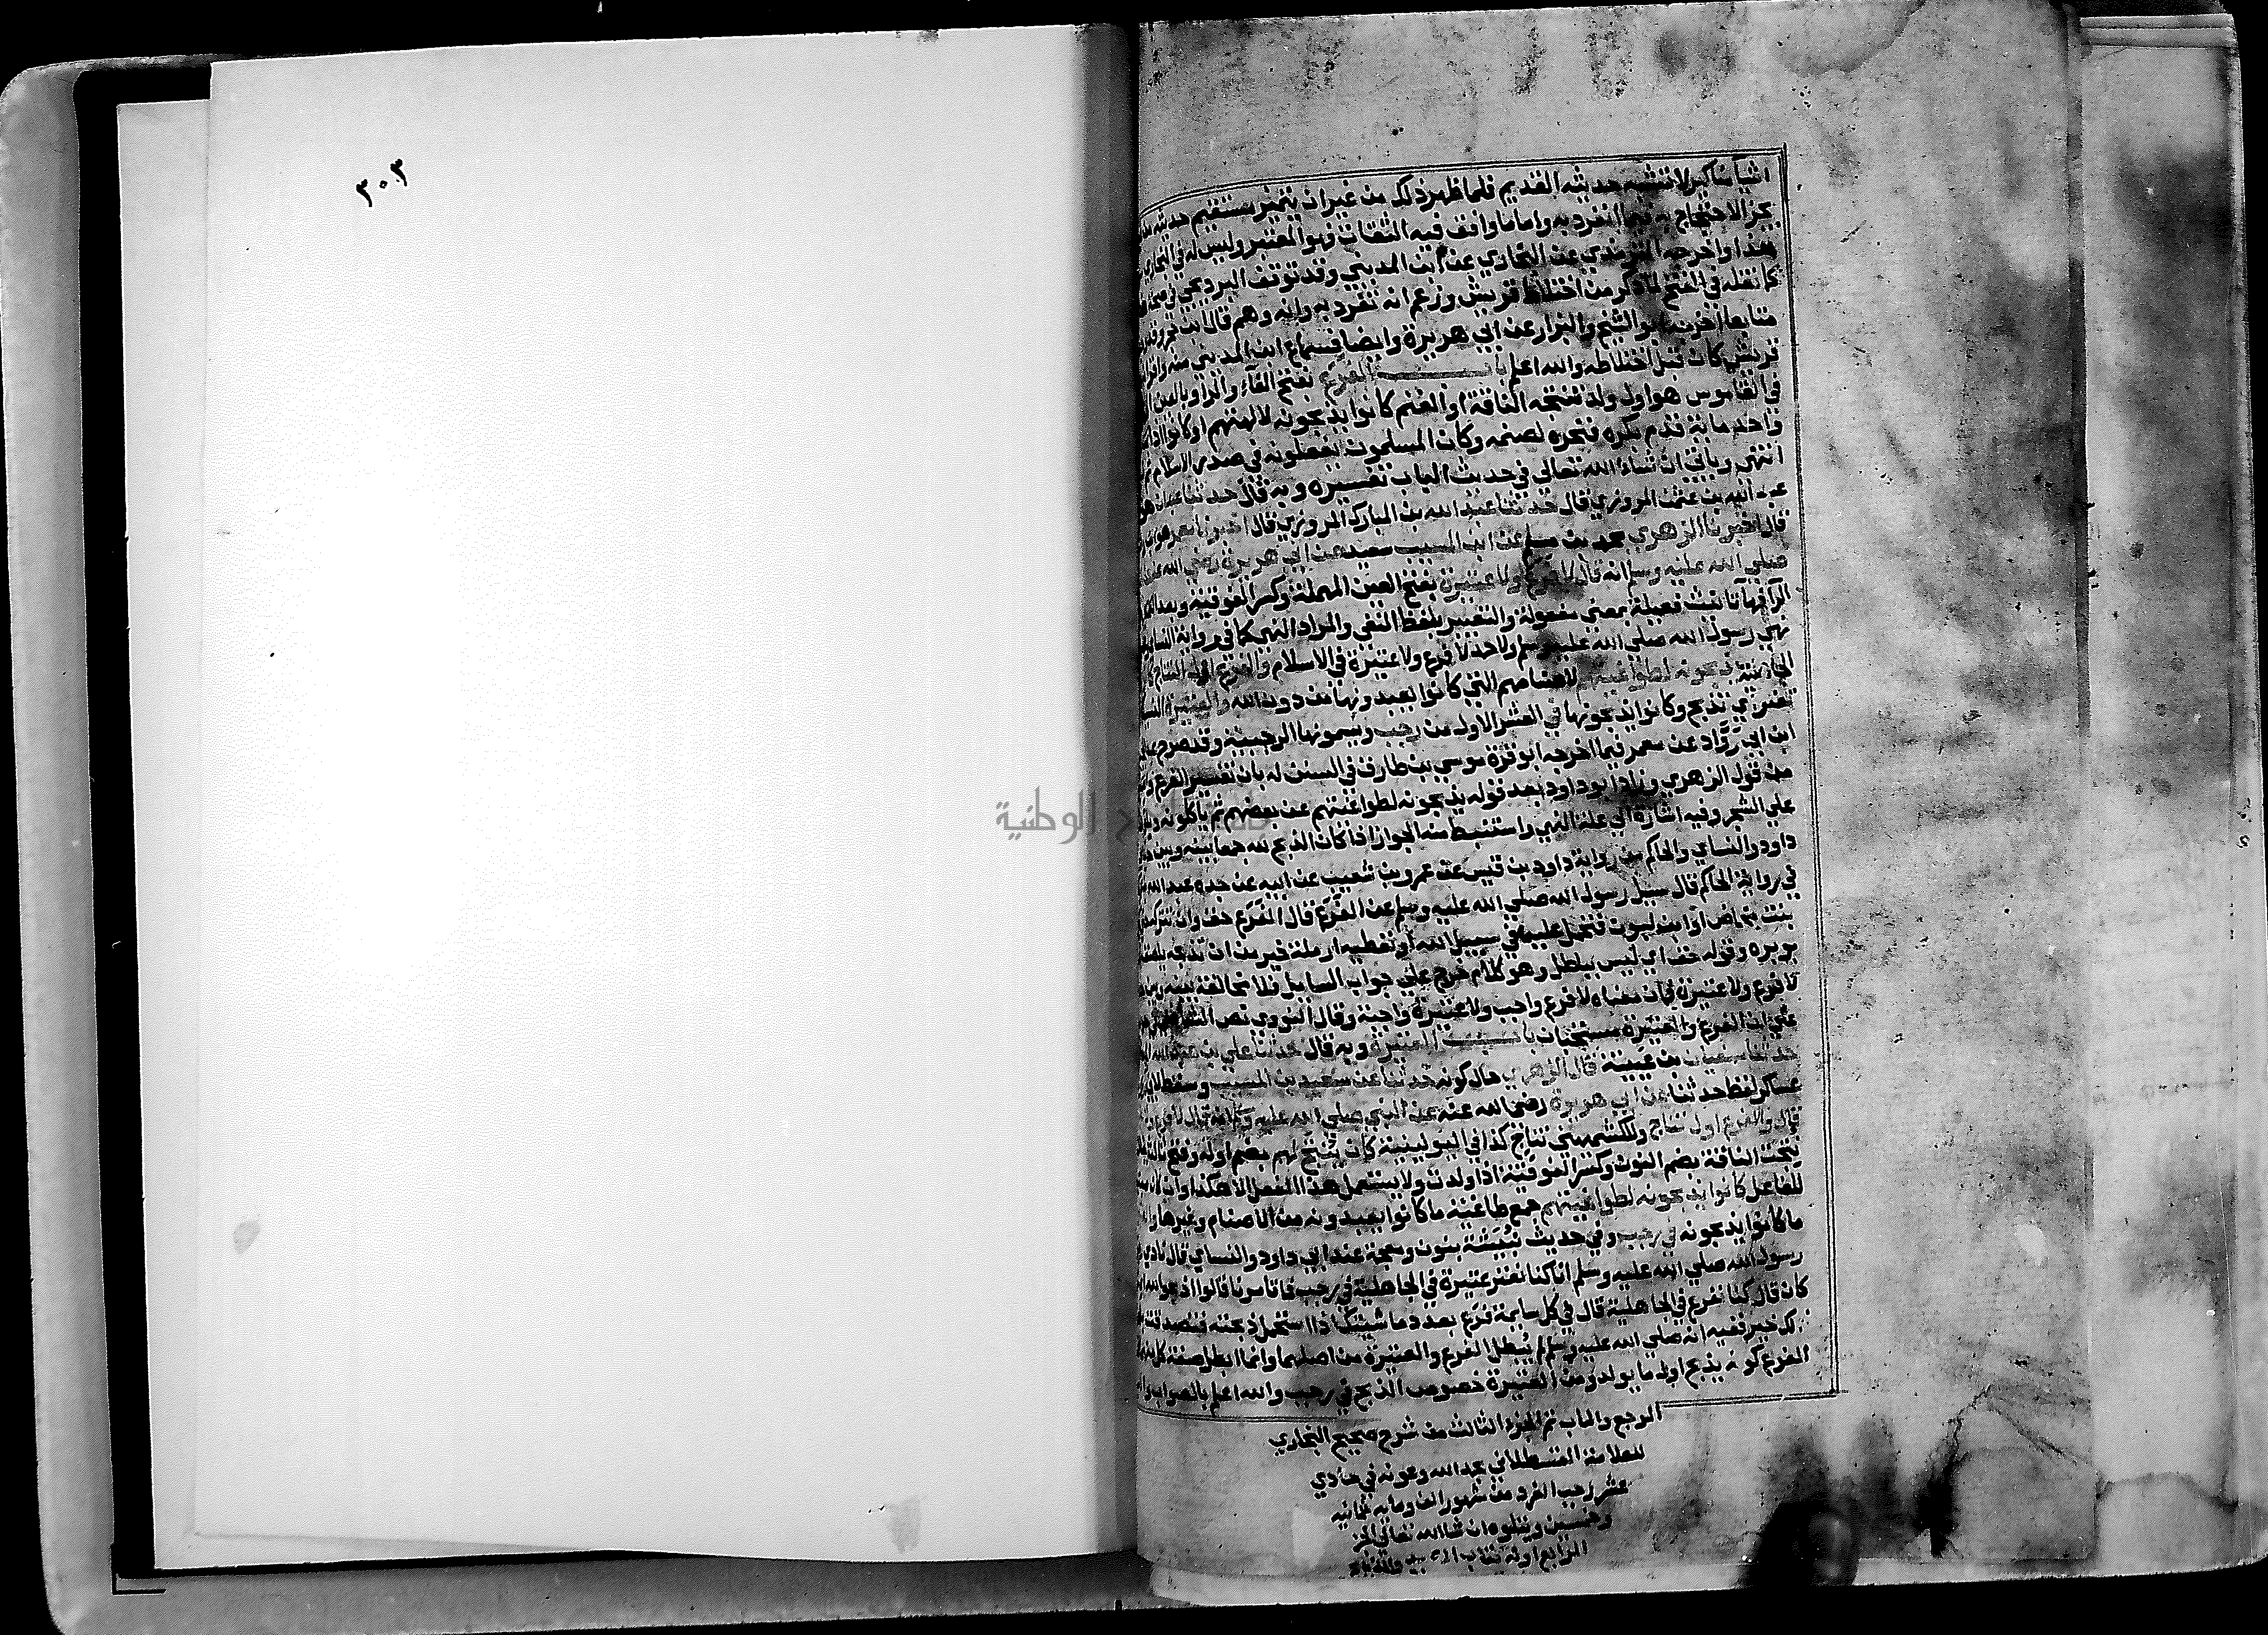 ٣٠٢
اشيا مناكير لا تشبه حديثه القديم فلما ظهر ذلك من غير ان يتميز مستقيم حديثه من
يجز الاحتجاج به فيما انفرد به واما ما وافق فيه الثقات فهو المعتبر وليس له في البخاري
هذا واخرجه الترمذي عن البخاري عن ابن المديني وقد توقف البرديجي في صحة
كما نقله في الفتح لما ذكر من اختلاط قريش وزعم انه تفرد به وانه وهم قال ابن حجر وقد
متابعا اخرجه ابو الشيخ والبزار عن ابي هريرة وايضا فسماع ابن المديني منه واقرانه
قريش كان قبل اختلاطه والله اعلم باب الفرع بفتح الفاء والراء وبالعين
في القاموس هو اول ولد تنتجه الناقة او الغنم كانوا يذبحونه لآلهتهم او كانوا اذا
واحد ماية قدم بكره فنحره لصنمه وكان المسلمون يفعلونه في صدر الاسلام ثم
انتهى وياتي ان شاء الله تعالى في حديث الباب تفسيره وبه قال حدثنا عبدان هو
عبد الله بن عثمن المروزي قال حدثنا عبد الله بن المبارك المروزي قال اخبرنا معمر هو بن
قال اخبرنا الزهري محمد بن مسلم عن ابن المسيب سعيد عن ابي هريرة رضي الله عنه
صلي الله عليه وسلم انه قال لا فرع ولا عتيرة بفتح العين المهملة وكسر الفوقية وبعد
الراء فيها تانيث فعيلة بمعني مفعولة والتعبير بلفظ النفي والمراد النهي كما في رواية النسايي
نهي رسول الله صلي الله عليه وسلم ولاحمد لا فرع ولا عتيرة في الاسلام والفرع اول النتاج كا
يذبحونه لطواغيتهم لاصنامهم التي كانوا يعبدونها من دون الله والعتيرة
تعتر اي تذبح وكانوا يذبحونها في العشر الاول من رجب ويسمونها الرجبية وقد صرح
ابن ابي روّاد عن معمر فيما اخرجه ابو قرة موسي بن طارق في السنن له بان تفسير الفرع و
من قول الزهري وزاد ابو داود بعد قوله يذبحونه لطواغيتهم عن بعضهم ثم ياكلونه
علي الشجر وفيه اشارة الي علة النهي واستنبط منه الجواز اذا كان الذبح لله جمعا بينه وبين
داود والنسايي والحاكم من رواية داود بن قيس عن عمرو بن شعيب عن ابيه عن جده عبد الله
في رواية الحاكم قال سيل رسول الله صلي الله عليه وسلم عن الفرع قال الفرع حق وان تتركه
بنت مخاض او ابن لبون فتحمل عليه في سبيل الله او تعطيه ارملة خير من ان تذبحه يلصق
بوبره وقوله حق اي ليس بباطل وهو كلام خرج علي جواب السايل فلا مخالفة بينه وبين
لا فرع ولا عتيرة فان معناه لا فرع واجب ولا عتيرة واجبة وقال النووي نص الشافعي
علي ان الفرع والعتيرة مستحبان باب العتيرة وبه قال حدثنا علي بن عبد الله
حدثنا سفيان بن عيينة قال الزهري حال كونه حدثنا عن سعيد بن المسيب وسقط
عساكر لفظ حدثنا عن ابي هريرة رضي الله عنه عن النبي صلي الله عليه وسلم انه قال لا فرع
قال والفرع اول نتاج وللكشميهني نتاج كذا في اليونينية كان ينتج لهم بضم اوله وفتح ثالثه
نتجت الناقة بضم النون وكسر الفوقية اذا ولدت ولا يستعمل هذا الفعل الا هكذا وان كان
للفاعل كانوا يذبحونه لطواغيتهم جمع طاغية ما كانوا يعبدونه من الاصنام وغيرها
ما كانوا يذبحونه في رجب وفي حديث نبيشة بنون ومعجمة عند ابي داود والنسايي قال نادي
رسول الله صلي الله عليه وسلم انا كنا نعتر عتيرة في الجاهلية في رجب فما تامرنا قال اذبحوا لله
كان قال كنا نفرع في الجاهلية قال في كل سايمة فرع تغذوه ماشيتك اذا استحمل ذبحته فتصدقت
ذلك خير ففيه انه صلي الله عليه وسلم لم يبطل الفرع والعتيرة من اصلهما وانما ابطل صفة كل
الفرع كونه يذبح اول ما يولد ومن العتيرة خصوص الذبح في رجب والله اعلم بالصواب
المرجع والماب تم الجزء الثالث من شرح صحيح البخاري
للعلامة القسطلاني بحمد الله وعونه في حادي
عشر رجب الفرد من شهور الف ومايه ثمانيه
وخمسين ويتلوه ان شاالله تعالي الجز
الرابع اوله كتاب
الوطنية